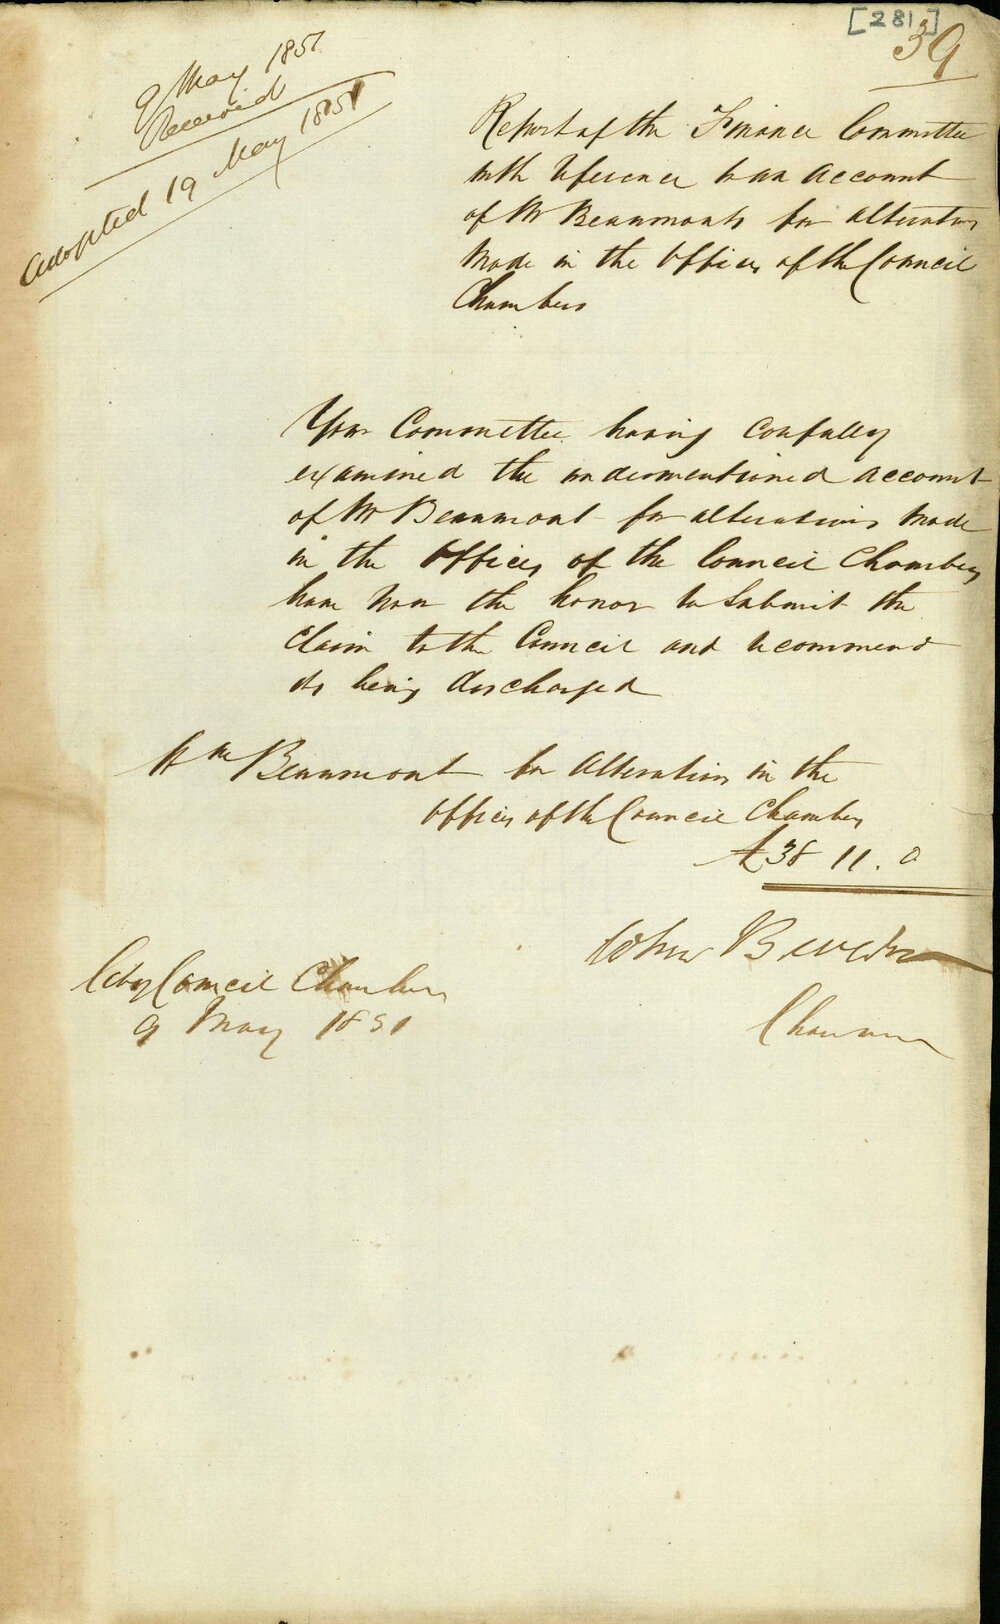 [281]
39
9 May 1851
Received
Adopted 19 May 1851
Report of the Finance Committee
with reference to an Account
of Mr Beaumonts for alterations
Made in the Offices of the Council
Chambers
Your Committee having carefully
examined the undermentioned Account
of Mr Beaumont for alterations made
in the Offices of the Council Chambers
have now the honor to Submit the
Claim to the Council and recommend
its being discharged
Wm Beaumont for Alterations in the
Offices of the Council Chambers
£38 11. 0
John
Chairman
City Council Chambers
9 May 1851